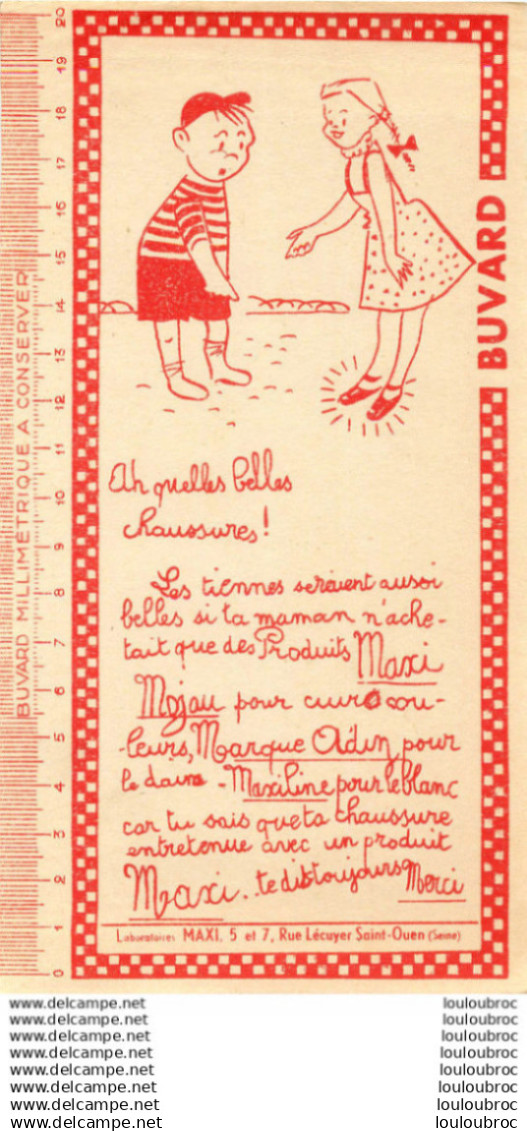 20
19
18
17
16
15
14
13
12
11
10
9
8
7
6
5
4
3
2
1
0
BUVARD MLLIMÉTRIQUE A CONSERVER
BUVARD
Ah quelles belles
chaussures!
Les tiennes seraient aussi
belles si ta maman n'ache-
tait que des Produits Maxi
Mojau pour cuirs cou-
-leurs, Marque Adin pour
le daim - Maxiline pour le blanc
car tu sais que ta chaussure
entretenue avec un produit
Maxi.. te dit toujours Merci
Laboratoires MAXI, 5 et 7, Rue Lécuyer Saint-Ouen (Seine)
www.delcampe.net louloubroc
www.delcampe.net louloubroc
www.delcampe.net louloubroc
www.delcampe.net louloubroc
www.delcampe.net louloubroc
www.delcampe.net louloubroc
www.delcampe.net louloubroc
www.delcampe.net louloubroc